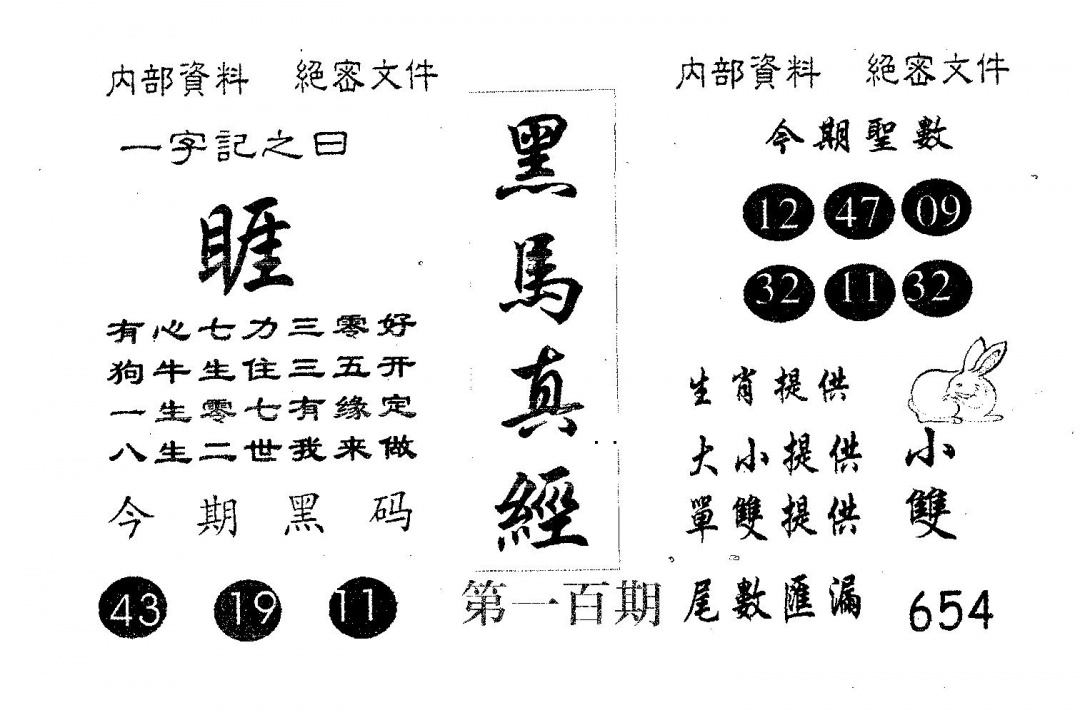 内部資料 絕密文件
一字記之曰
睚
有心七力三零好
狗牛生住三五开
一生零七有缘定
八生二世我来做
今期黑码
43 19 11
黑馬真經
第一百期
内部資料 絕密文件
今期聖數
12 47 09
32 11 32
生肖提供
大小提供 小
單雙提供 雙
尾數匯漏 654